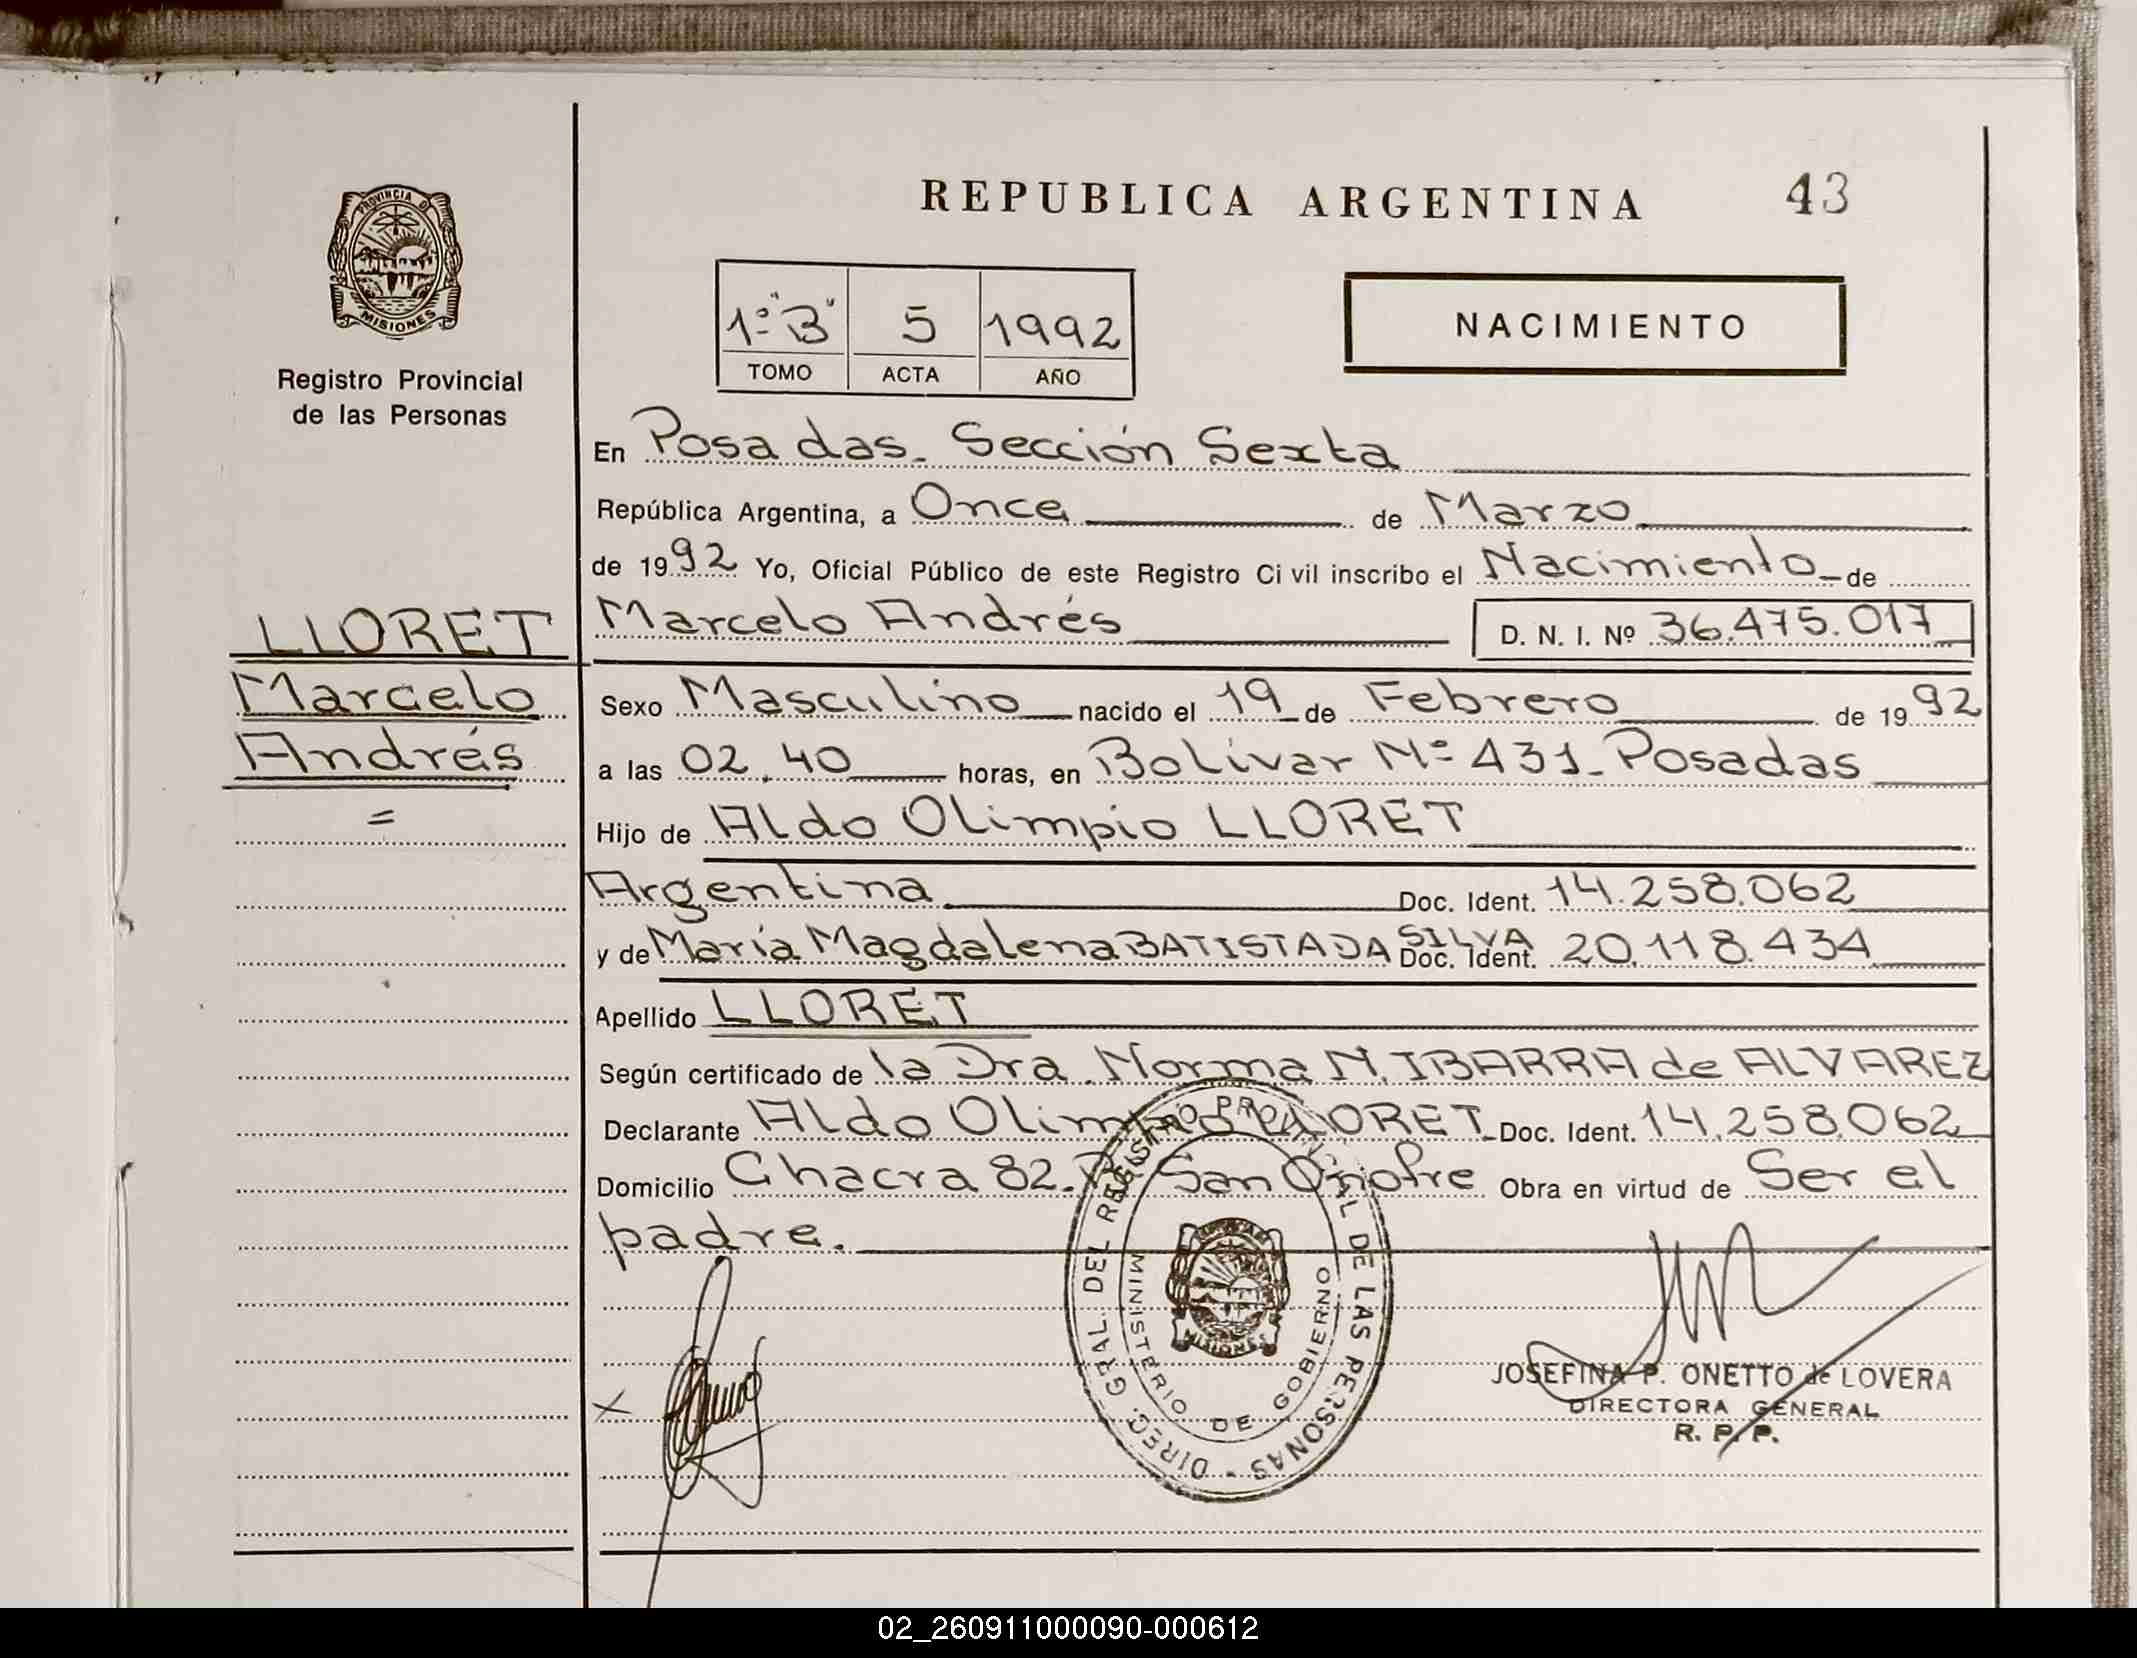 REPUBLICA ARGENTINA 43
PROVINCIA DE
MISIONES
Registro Provincial
de las Personas
1º "B" 5 1992
TOMO ACTA AÑO
NACIMIENTO
LLORET
Marcelo
Andrés
=
En Posadas. Sección Sexta
República Argentina, a Once de Marzo
de 1992 Yo, Oficial Público de este Registro Ci vil inscribo el Nacimiento de
Marcelo Andrés D. N. I. Nº 36.475.017
Sexo Masculino nacido el 19 de Febrero de 1992
a las 02,40 horas, en Bolivar Nº 431_Posadas
Hijo de Aldo Olimpio LLORET
Argentina Doc. Ident. 14.258.062
y de María Magdalena BATISTA DA SILVA Doc. Ident. 20.118.434
Apellido LLORET
Según certificado de la Dra. Norma N. IBARRA de ALVAREZ
Declarante Aldo Olimpio LLORET Doc. Ident. 14.258.062
Domicilio Chacra 82. San Onofre Obra en virtud de Ser el
padre.
DIREC. GRAL. DEL REGISTRO PROVINCIAL DE LAS PERSONAS -
MINISTERIO DE GOBIERNO
MISIONES
JOSEFINA P. ONETTO de LOVERA
DIRECTORA GENERAL
R. P. P.
02_260911000090-000612